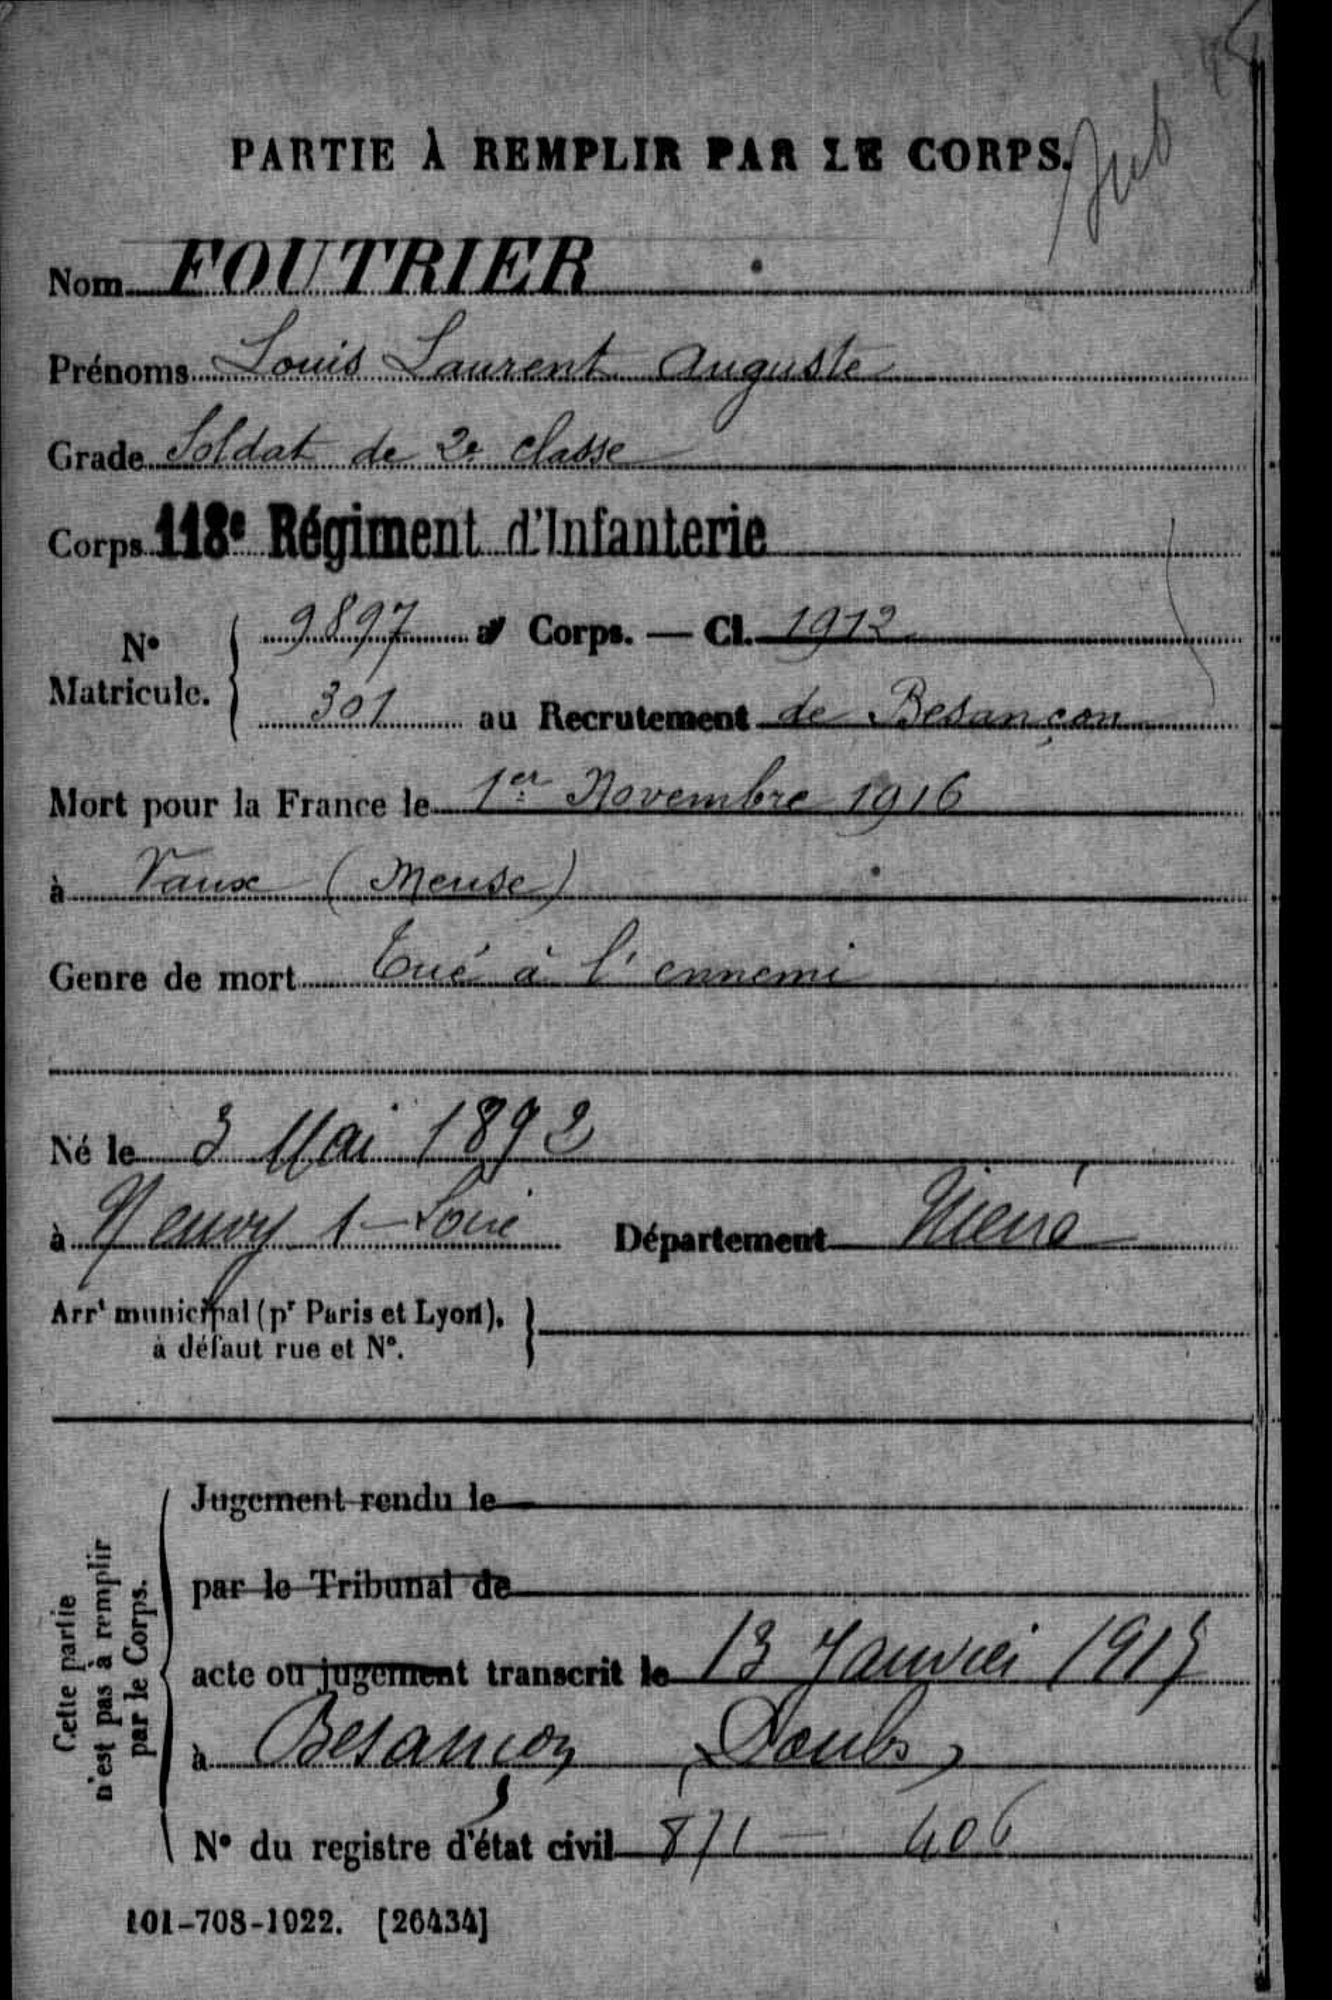 PARTIE À REMPLIR PAR LE CORPS.
Nom FOUTRIER
Prénoms Louis Laurent Auguste
Grade Soldat de 2e classe
Corps 118e Régiment d'Infanterie
N° Matricule. { 9897 au Corps. — Cl. 1912
301 au Recrutement de Besançon
Mort pour la France le 1er Novembre 1916
à Vaux (Meuse)
Genre de mort Tué à l'ennemi
Né le 3 Mai 1892
à Neuvy s-Loire Département Nièvre
Arrt municipal (pr Paris et Lyon), }
à défaut rue et N°.
Cette partie n'est pas à remplir par le Corps.
Jugement rendu le
par le Tribunal de
acte ou jugement transcrit le 13 Janvier 1917
à Besançon (Doubs)
N° du registre d'état civil 871 — 406
101-708-1922. [26434]